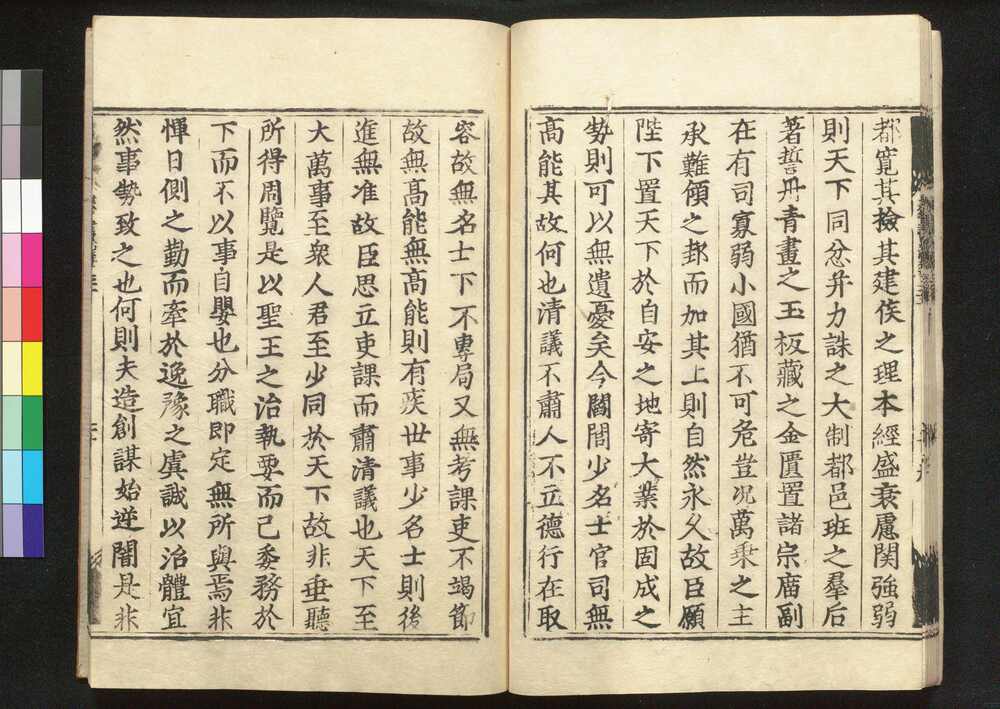 都寛其撿其建侯之理本經盛衰慮関強弱
則天下同忿并力誅之大制都邑班之羣后
著誓丹青畫之玉板藏之金匱置諸宗庙副
在有司寡弱小國猶不可危豈况萬乗之主
承難傾之邦而加其上則自然永久故臣願
陛下置天下於自安之地寄大業於固成之
勢則可以無遺憂矣今閻閭少名士官司無
髙能其故何也清議不肅人不立德行在取
容故無名士下不專局又無考課吏不竭節
故無髙能無髙能則有疾世事少名士則後
進無准故臣思立吏課而肅清議也天下至
大萬事至衆人君至少同於天下故非垂聽
所得周覽是以聖王之治執要而已委務於
下而不以事自嬰也分職即定無所與焉非
惮日側之勤而牽於逸豫之虞誠以治體宜
然事勢致之也何則夫造創謀始逆闇是非